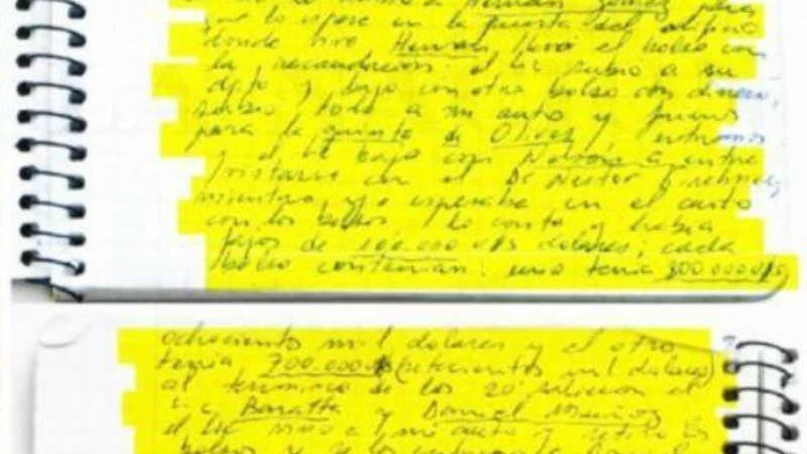 Hernan Gomez para
que lo espere en la puerta del edificio
donde vive, Hernan llevó el bolso con
la recaudacion el Lic subio a su
dpto y bajo con otro bolso con dinero,
todo a mi auto y fuimos
para la quinta de Olivos,
el Lic bajo con
con el Dr Nestor Kirchner
mientras yo esperaba en el auto
con los bolsos lo conte y habia
fajos de 100.000 u$s dolares, cada
bolso contenian: uno tenia 800.000u$s
ochocientos mil dolares y el otro
tenia 700.000u$s (setecientos mil dolares)
al termino de los 20 el
Lic Baratta y Daniel Muñoz
el Lic vino a mi auto y retiro los
bolsos y se los Daniel